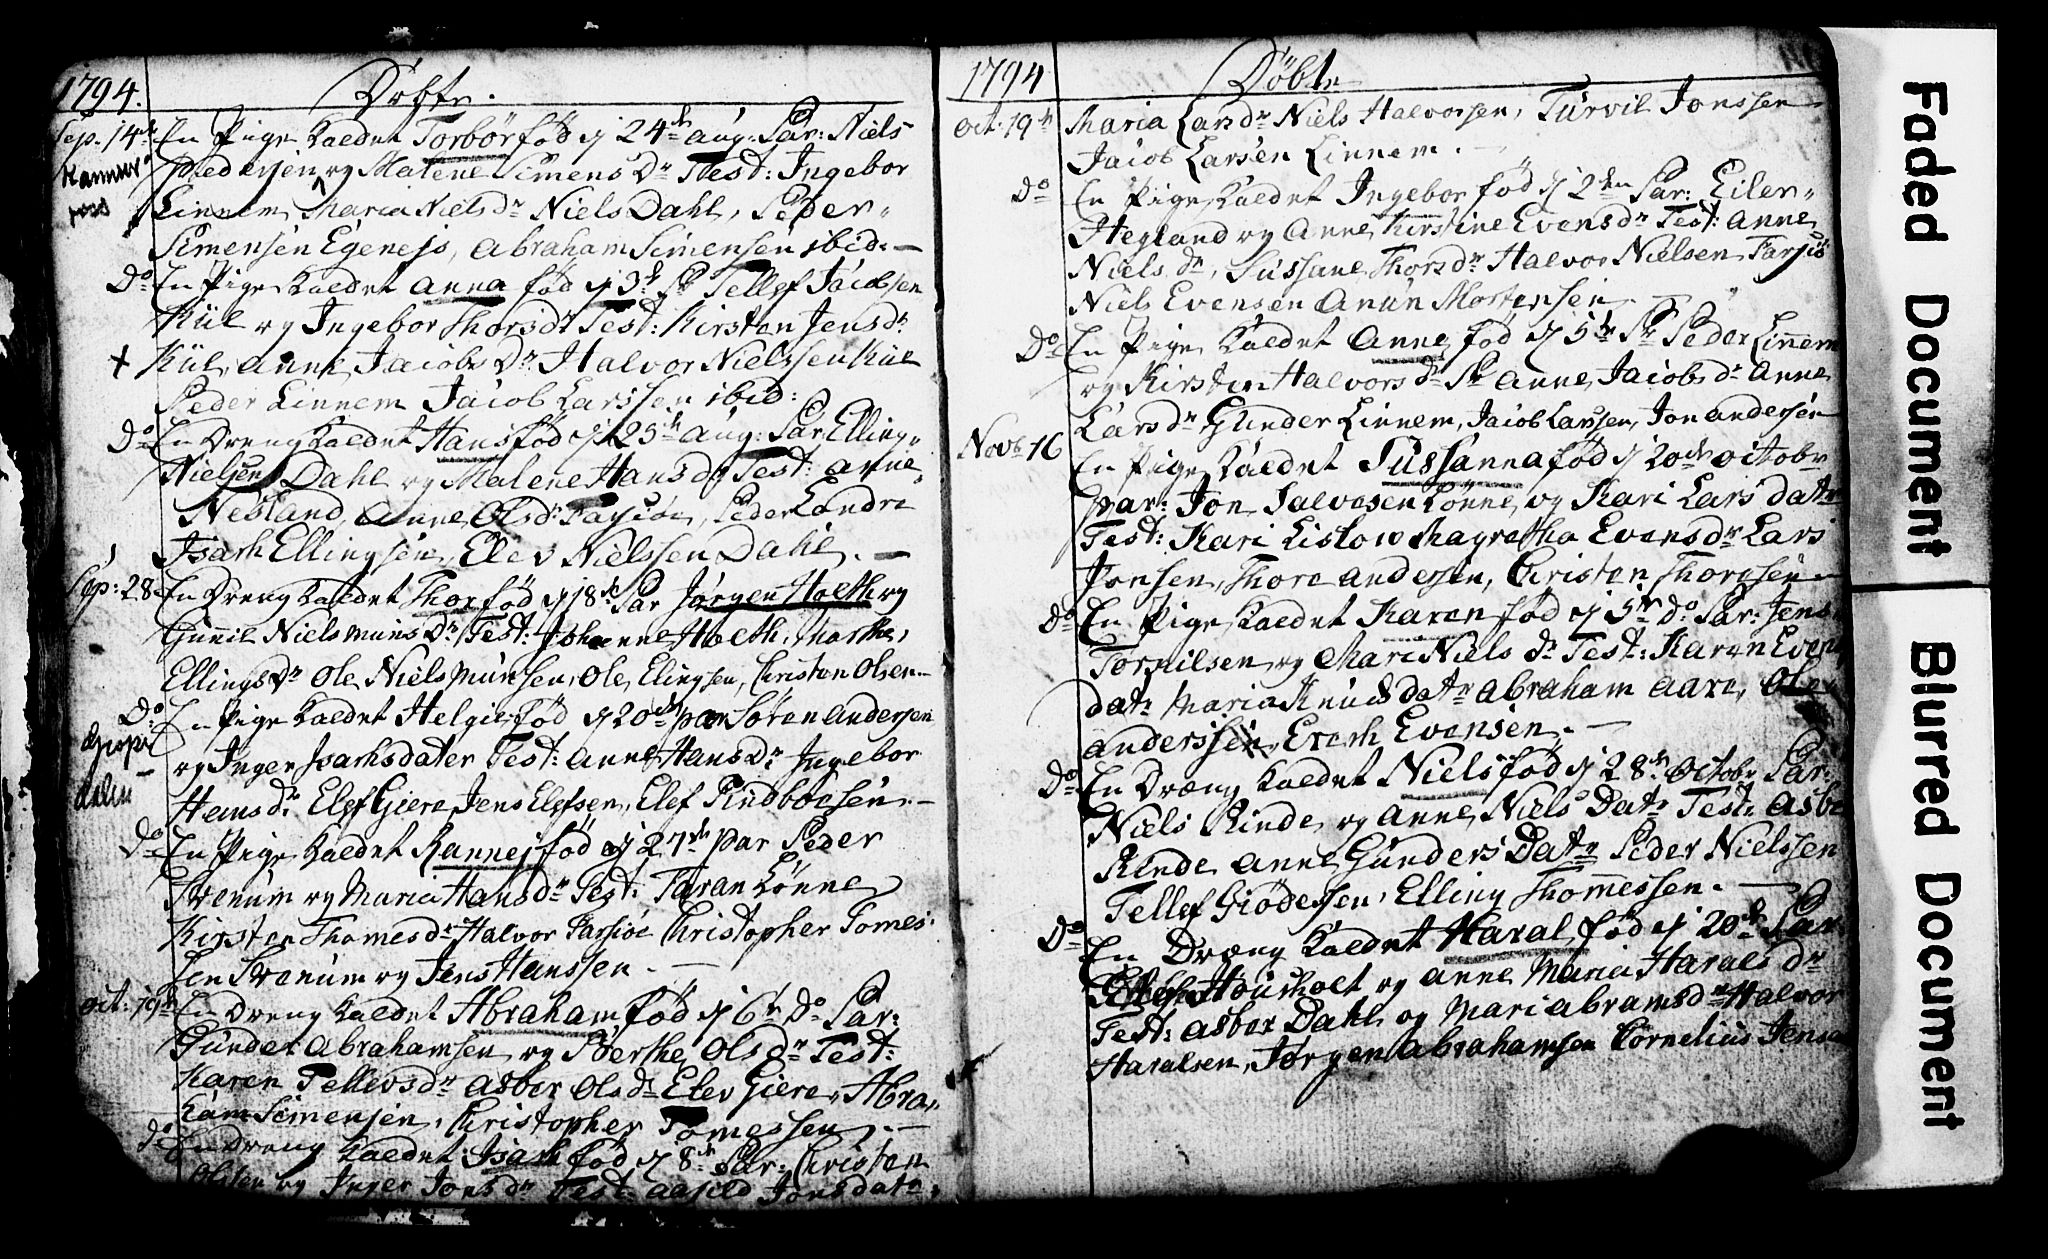 1794. Døbte.
Sep. 14de En Pige kaldet Torbør fød d 24de aug: Par: Niels
Pedersen og Malene Simens Dr Test: Ingebor
Linnem, Maria Niels dr Niels Dahl, Peder
Simensen Egenejs, Abraham Simensen ibid: —
Do En Pige kaldet Anna fød d 3d Pr Tellef Jacobsen
Kiil og Ingebor Thorsdr Test: Kirsten Jensdr
+ Kiil, Anne Jacobs Dr Halvor Nielssen Kiil
Peder Linnem Jacob Larssen ibid:
Do En Dreng kaldet Hans fød d 25de aug: Par Elling
Nielsen Dahl og Malene Hans dr Test: Anne
Nesland, Anne Olsdr, Peder Londre
Isach Ellingsen, Elev Nielssen Dahl. —
Sep: 28 En Dreng kaldet Thor fød d 18de Par Jørgen Hoeth og
Gunnil Nielsmuns Dr Test: Johanne Hoeth, Marthe
Ellingsdr Ole Nielsmunsen, Ole Elingsen, Christen Olsen
Do En Pige kaldet Helgie fød d 20de par Søren Andersen
og Inger Isachsdater Test: Anne Hansdr Ingebor
Hansdr Elef Giere Jens Elefsen, Elef Rindboesen. —
Do En Pige kaldet Rannej fød d 27de par Peder
Strenum og Maria Hansdr Test: Taran Lønne
Kirsten Thomesdr Halvor Farsiøe Christopher Tomes
sen Strenum og Jens Hanssen. —
Oct: 19de En Dreng kaldet Abraham fød d 6te Do Par:
Gunder Abrahamsen og Berthe Ols dr Test:
Karen Tellevsdr Asber Olsdr Elev Giere, Abra
ham Simensen, Christopher Tomessen. —
Do En Dreng kaldet Isach fød d 8de Par: Christen
Olsen og Inger Jonsdr Test: Aasild Jonsdatr
1794 Døbte
Oct: 19de Maria Larsdr Niels Halvorsen, Turvil Jonssen
Jacob Larsen Linnem. —
Do En Pige kaldet Ingebor fød d 2den Par: Eiler
Hegland og Anne Kirstine Evensdr Test: Anne
Niels dr, Sussane Thorsdr Halvor Nielsen Farsiø
Niels Evensen Anun Mortensen. —
Do En Pige kaldet Anne fød d 5te Pr Peder Linnem
og Kirsten Halvors dr Pr Anne Jacobsdr Anne
Larsdr Gunder Linnem, Jacob Larssen, Jon Andersen
Novb 16 En Pige kaldet Sussanna fød d 20de octobr
par: Jon Salvesen Lønne og Kari Larsdatr
Test: Kari Lislow Magretha Evensdr Lars
Jonsen, Thore Andersen, Christen Thoresen —
Do En Pige kaldet Karen fød d 5te Do Par: Jens
Torkilsen og Mari Niels dr Test: Karen Evens
datr Maria Knudsdatr Abraham Aare, Ole
Anderssen, Erech Evensen. —
Do En Dræng kaldet Niels fød d 28de octobr Par:
Niels Rinde og Anne Niels Datr Test: Asbe
Rinde Anne Gunders Datr Peder Nielssen
Tellef Giødessen, Elling Thomessen. —
Do En Dræng kaldet Haral fød d 20de Par
Housholt og Anne Maria Harals dr
Test: Asber Dahl og Mari Abramsdr Halvor
Haralsen, Jørgen Abrahamsen Cornelius Jensen
Faded Document
Blurred Document